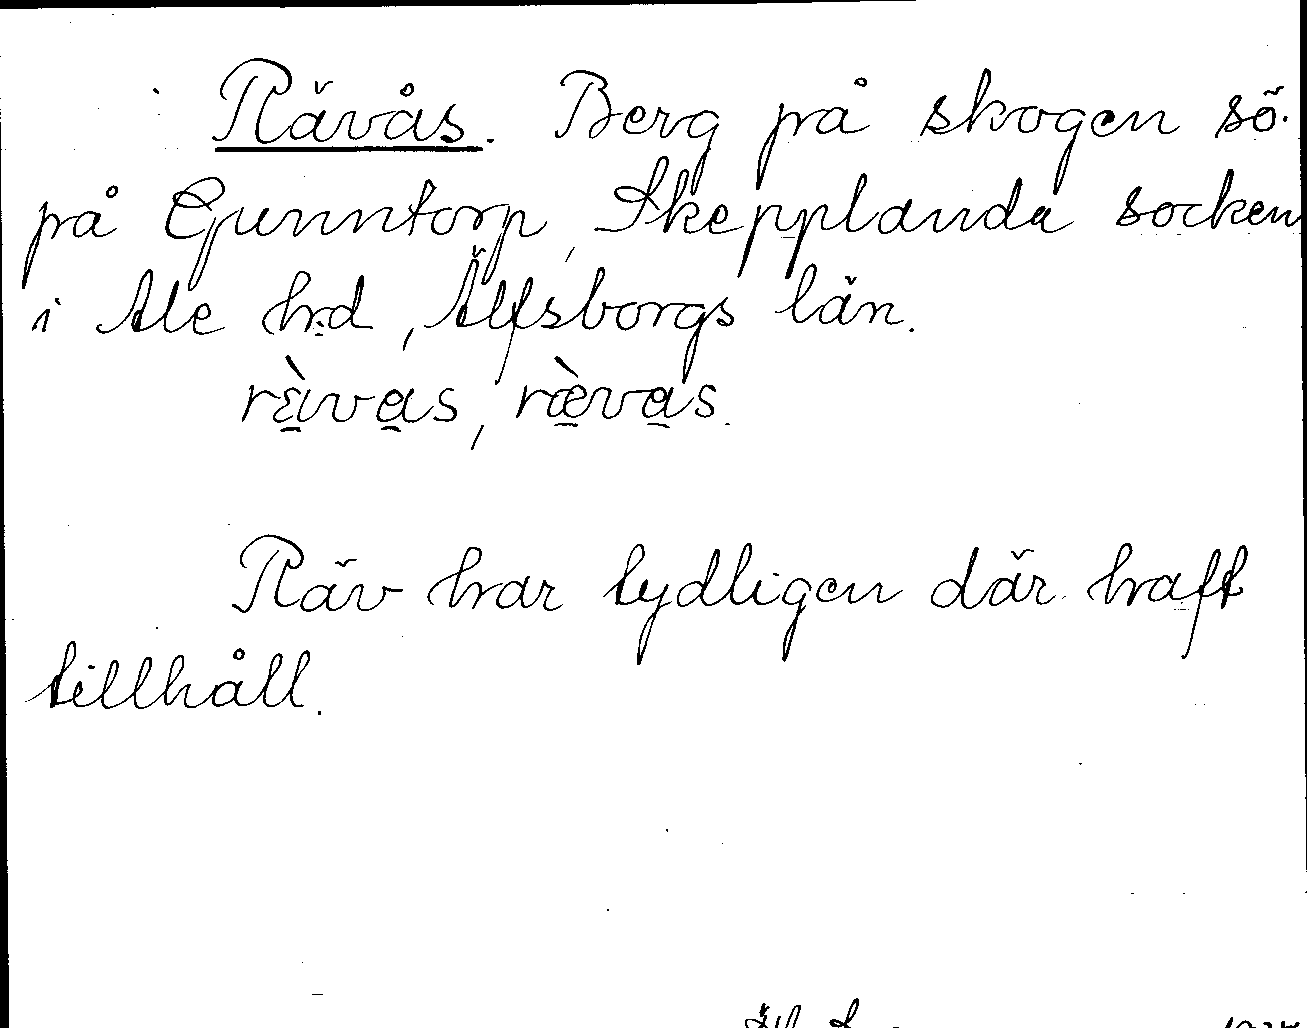 Rävås. Berg på skogen sö.
på Gunntorp, Skepplanda socken
i Ale hd, Älfsborgs län.
rὲ̱va̱s, ræ̱̀va̱s.
Räv har tydligen där haft
tillhåll.